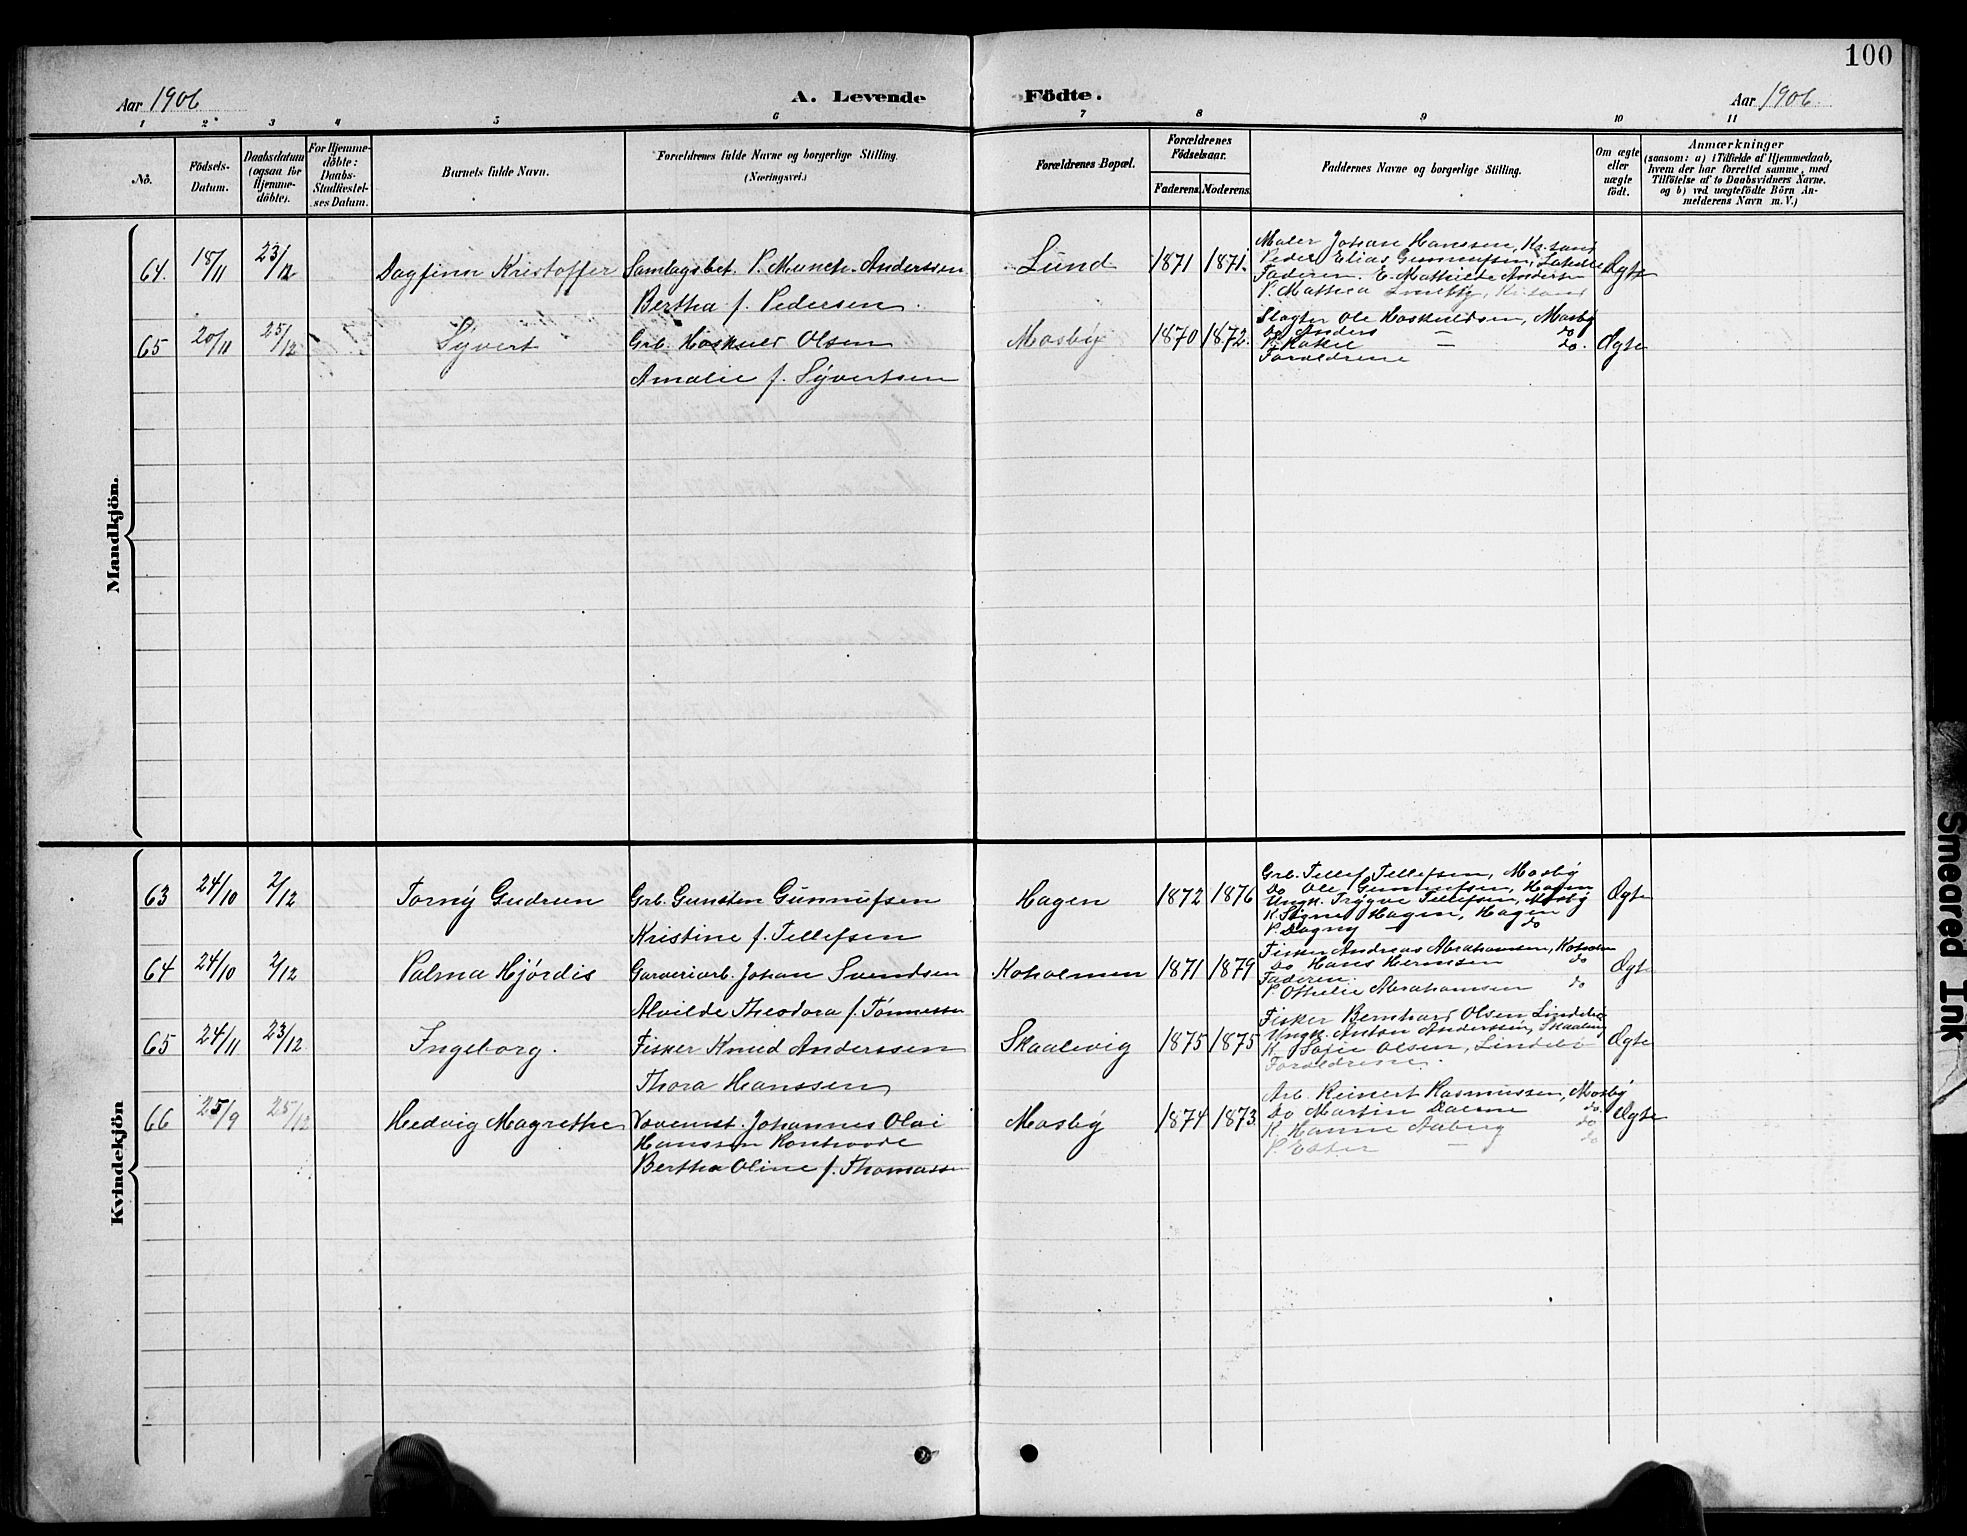 100
Aar 1906
A. Levende Födte.
Aar 1906.
1 2 3 4 5 6 7 8 9 10 11
No.
Födsels-
Datum.
Daabsdatum
(ogsaa for
Hjemme-
döbte).
For Hjemme-
döbte:
Daabs-
Stadfæstel-
ses Datum.
Barnets fulde Navn.
Forældrenes fulde Navne og borgerlige Stilling.
(Næringsvei.)
Forældrenes Bopæl.
Forældrenes
Födselsaar.
Faderens. Moderens.
Faddernes Navne og borgerlige Stilling.
Om ægte
eller
uægte
født.
Anmærkninger
(saasom: a) i Tilfælde af Hjemmedaab,
hvem der har forrettet samme, med
Tilföielse af to Daabsvidners Navne,
og b) ved uægtefödte Börn An-
melderens Navn m. V.)
Mandkjön.
64. 18/11 23/12 Dagfinn Kristoffer
Samlagsbet. P. Munch Anderssen
Bertha f. Pedersen
Lund 1871 1871.
Maler Johan Hanssen, Kr.sand
Peder Elias Gunnufsen,
Faderen. E. Mathilde Andersen
P. Mathea Kr.sand
Ægte
65 20/11 25/12 Syvert
Grb. Hoskuld Olsen
Amalie f. Syvertsen
Mosby 1870 1872.
Slagter Ole Hoskuldsen, Mosby
Do Anders — do
P. — do.
Forældrene
Ægte
Kvindekjön
63 24/10 2/12 Torny Gudrun
Grb. Gunsten Gunnufsen
Kristine f. Tellefsen
Hagen 1872 1876
Grb. Tellef Tellefsen, Mosby
Do Ole Gunnufsen, Hagen
Ungk. Trygve Tellefsen, Mosby
K. Signe Hagen, Hagen
P. Dagny — do
Ægte
64 24/10 2/12 Palma Hjördis
Garveriarb. Johan Svendsen
Alvilde Theodora f. Tönnessen
Koholmen 1871 1879
Fisker Andreas Abrahamsen, Koholmen
Do Hans Hermsen do
Faderen.
P. Othelie Abrahamsen do
Ægte
65 24/11 23/12. Ingeborg.
Fisker Knud Anderssen
Thora Hanssen
Skaalevig 1875 1875
Fisker Bernhard Olsen, Lindebö
Ungk. Anton Anderssen, Skaalevig
K. Sofie Olsen, Lindebö
Forældrene.
Ægte
66 25/9 25/12 Hedvig Magrethe
Vovemst. Johannes Olai
Hanssen Ronhovde
Bertha Oline f. Thomassen
Mosby 1874 1873.
Arb. Reinert Rasmussen, Mosby
Do Martin do.
K. Hanne Aaberg do
P. Ester — do
Ægte
Smeared Ink